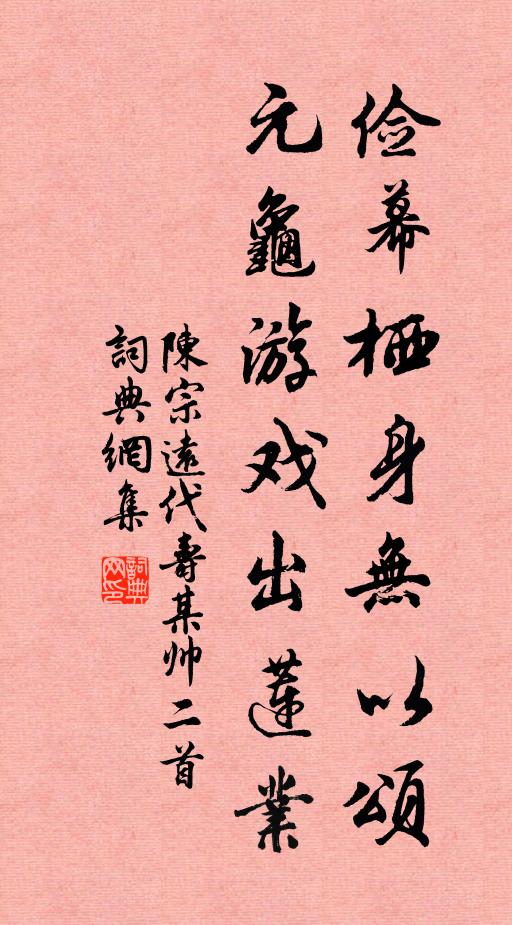 俭幕栖身無以頌
元龜游戏出蓮業
陳宗遠代壽某帅二首
詞典網集
詞典网印